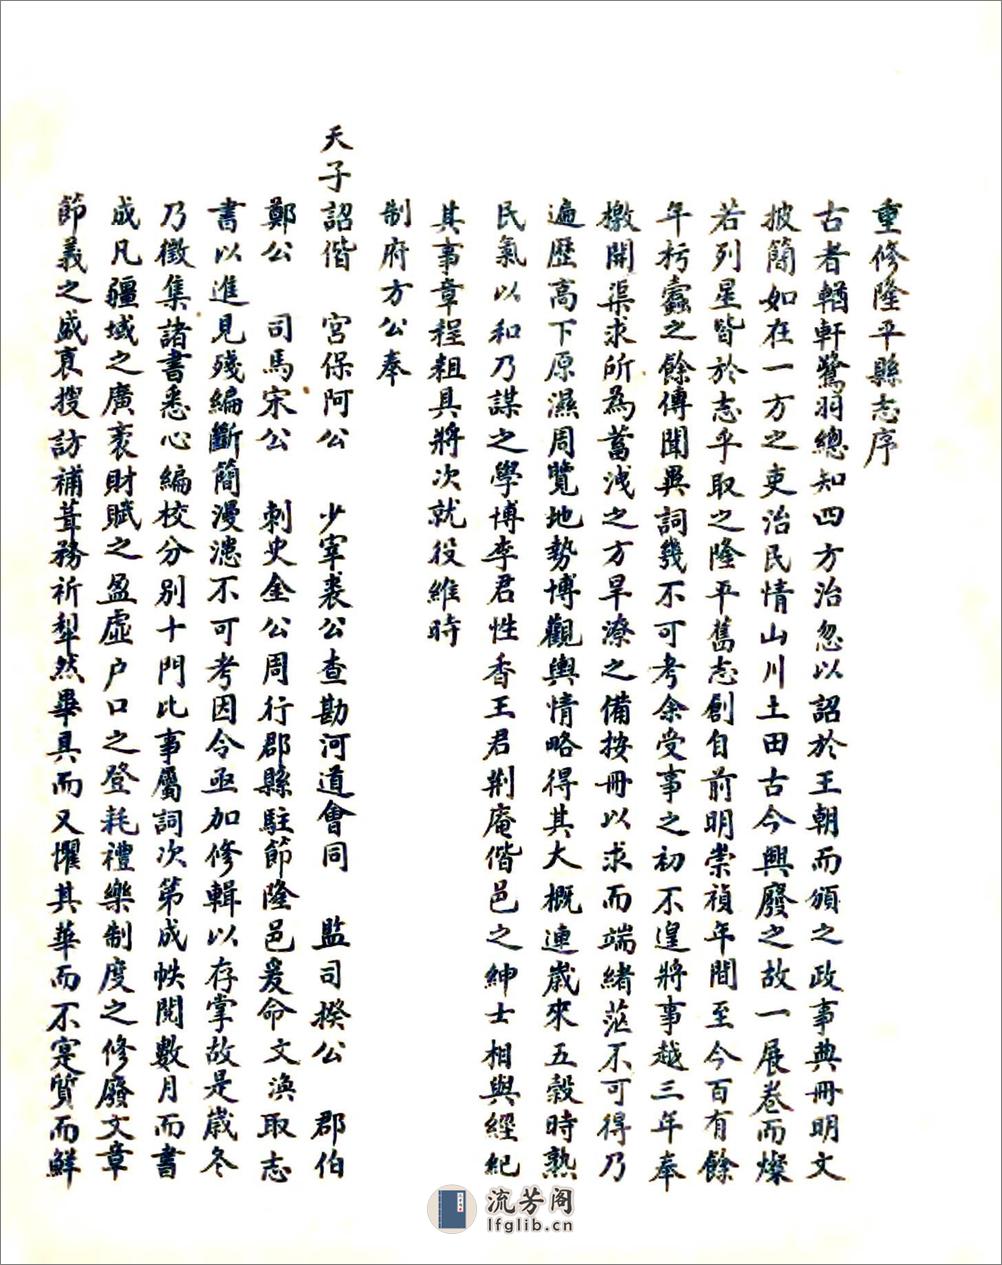 重修隆平縣志序
古者輶軒鷺羽總知四方治忽以詔於王朝而頒之政事典冊明文
披簡如在一方之吏治民情山川土田古今興廢之故一展卷而燦
若列星皆於志乎取之隆平舊志創自前明崇禎年間至今百有餘
年朽蠹之餘傳聞異詞幾不可考余受事之初不遑將事越三年奉
檄開渠求所為蓄洩之方旱潦之備按冊以求而端緒茫不可得乃
遍歷高下原濕周覽地勢博觀輿情略得其大概連歲來五穀時熟
民氣以和乃謀之學博李君性香王君荆庵偕邑之紳士相與經紀
其事章程粗具將次就役維時
制府方公奉
天子詔偕 宮保阿公 少宰裘公查勘河道會同 監司揆公 郡伯
鄭公 司馬宋公 刺史金公周行郡縣駐節隆邑爰命文渙取志
書以進見殘編斷簡漫漶不可考因令亟加修輯以存掌故是歲冬
乃徵集諸書悉心編校分別十門比事屬詞次第成帙閱數月而書
成凡疆域之廣袤財賦之盈虛户口之登耗禮樂制度之修廢文章
節義之盛裒搜訪補葺務祈犁然畢具而又懼其華而不寔質而鮮
流芳阁
lfglib.cn